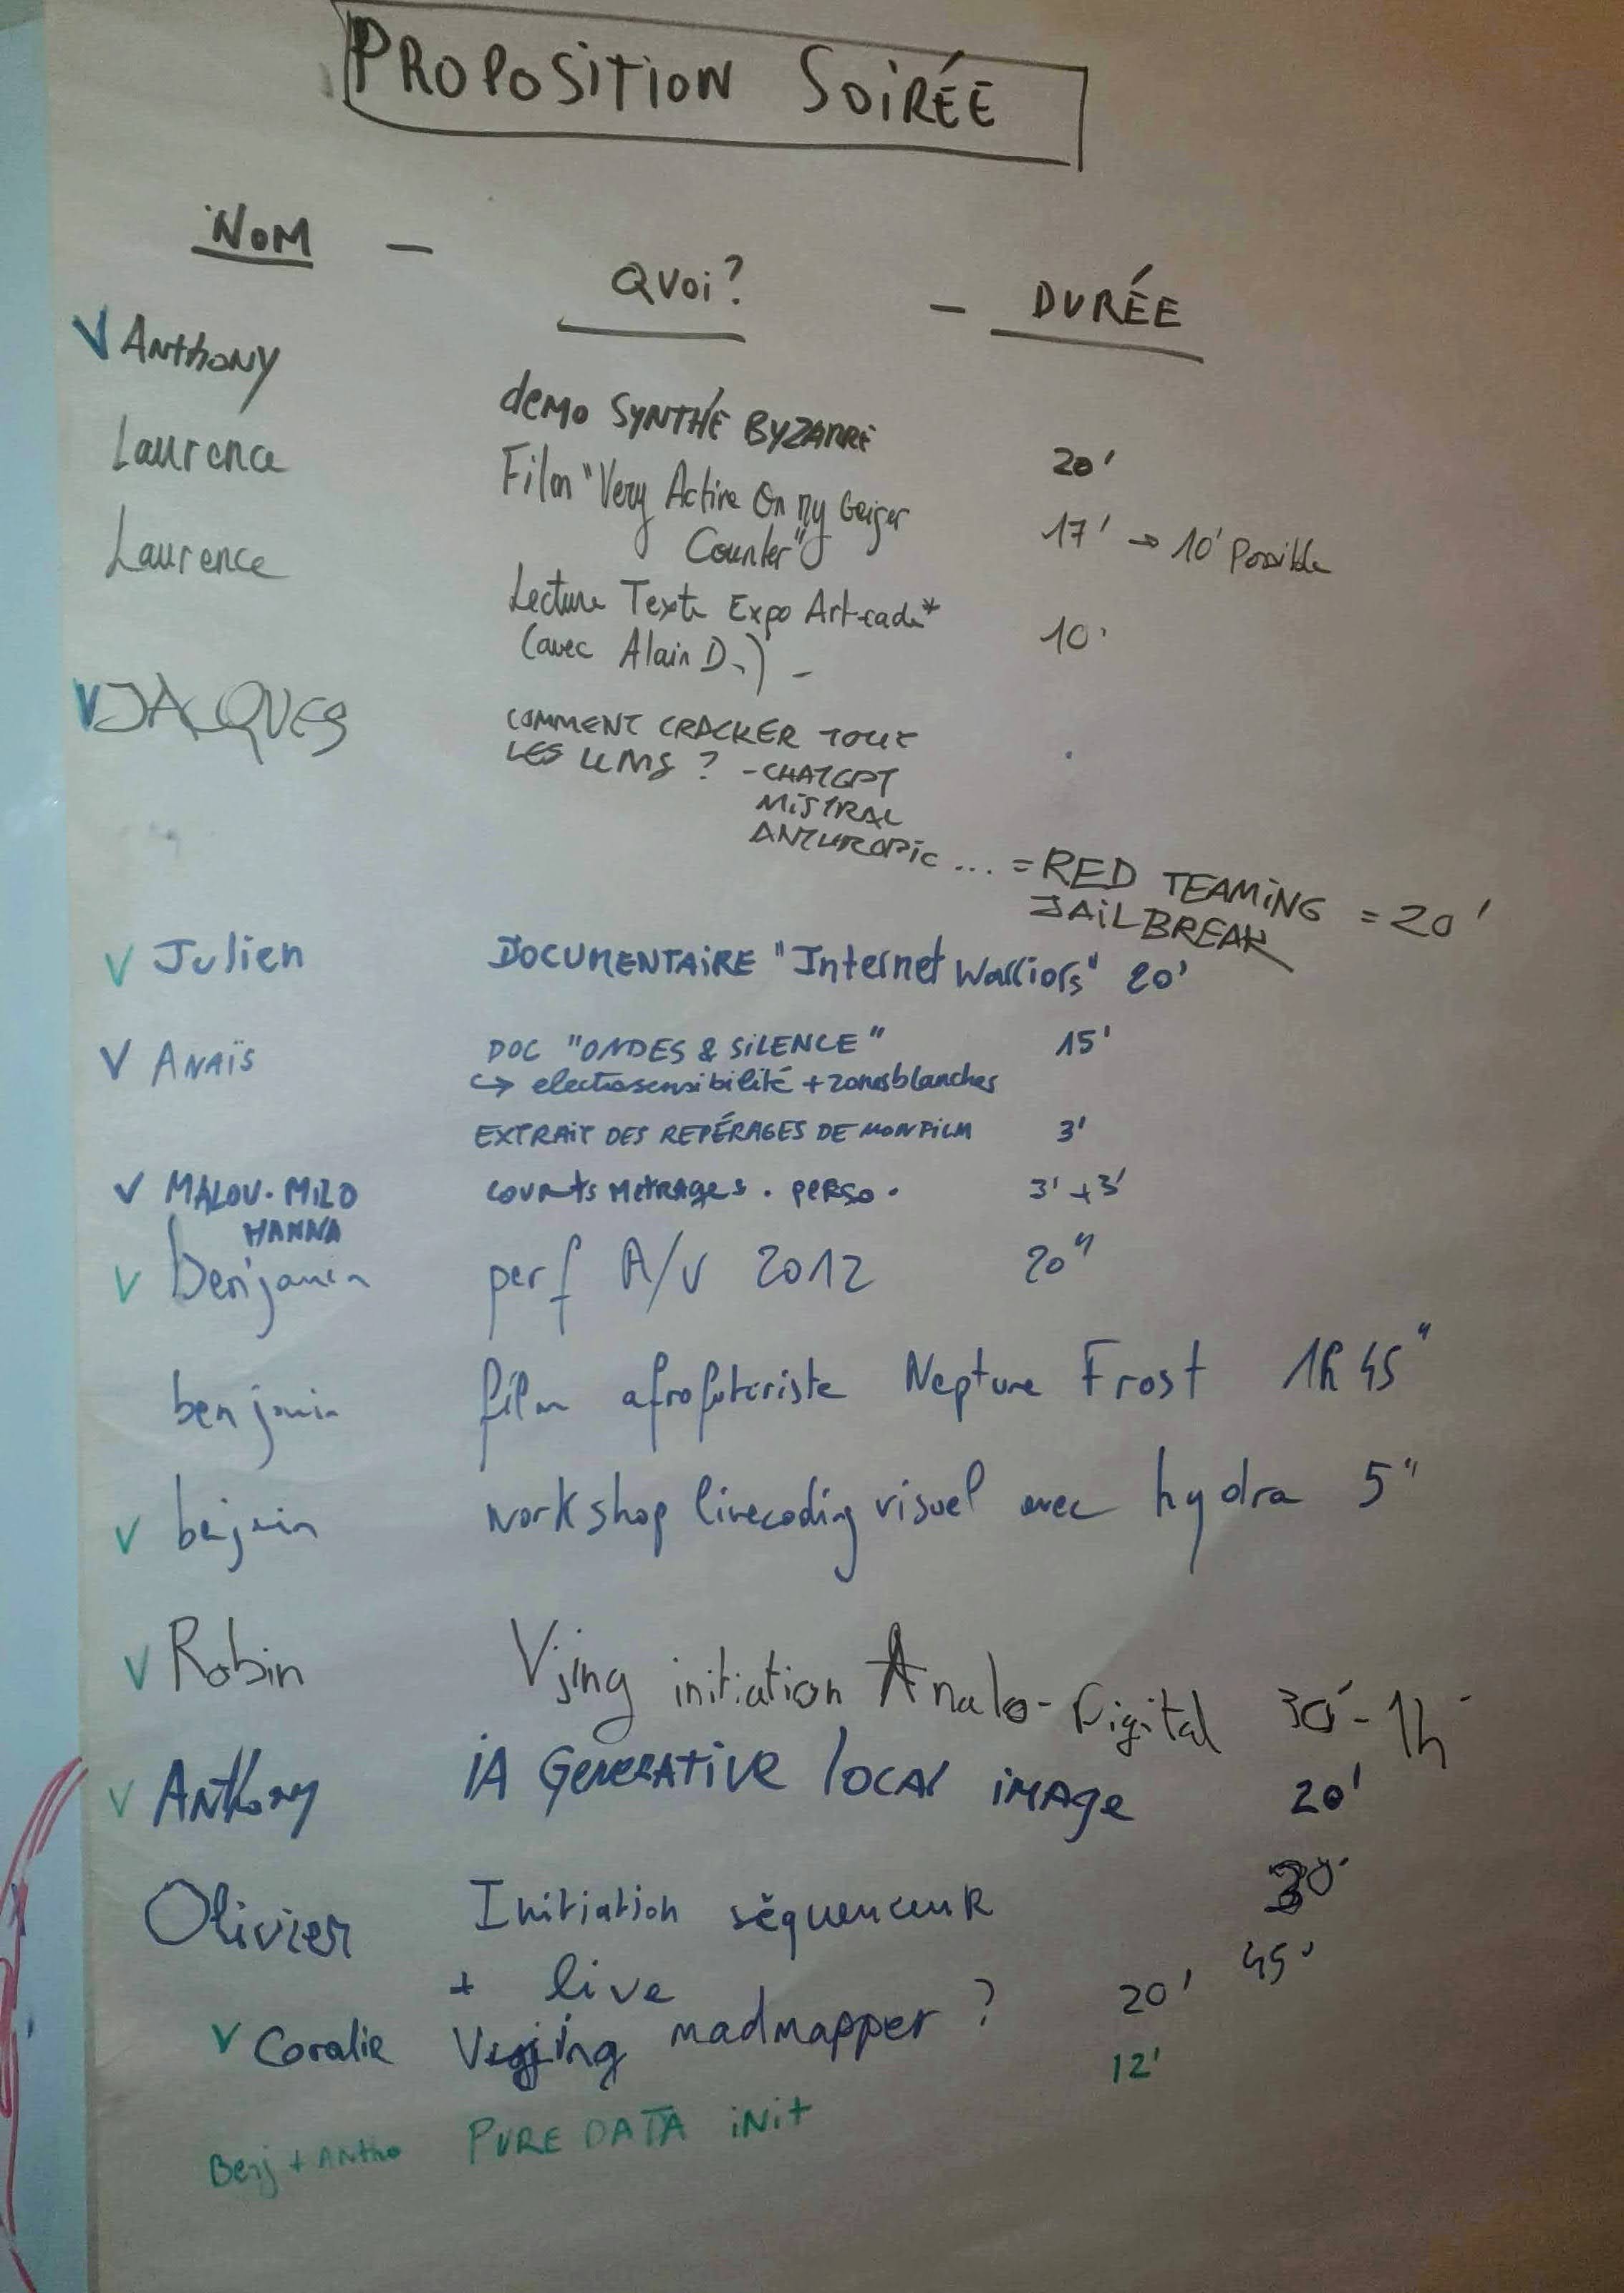 PROPOSITION SOIRÉE
NOM - QUOI? - DURÉE
V Anthony demo SYNTHÉ BYZARRE 20'
Laurence Film "Very Active On My Geiger
Counter" 17' → 10' Possible
Laurence Lecture Texte Expo Art-cade*
(avec Alain D.) - 10'
V JACQUES COMMENT CRACKER TOUT
LES LLMS ? - CHATGPT
MISTRAL
ANTHROPIC ... = RED TEAMING = 20'
JAILBREAK
V Julien DOCUMENTAIRE "Internet Warriors" 20'
V ANAÏS DOC "ONDES & SILENCE" 15'
↪ electrosensibilité + zones blanches
EXTRAIT DES REPÉRAGES DE MON FILM 3'
V MALOU. MILO courts métrages . perso . 3' + 3'
HANNA
V benjamin perf A/V 2012 20"
benjamin film afrofuturiste Neptune Frost 1h45"
V benjamin workshop livecoding visuel avec hydra 5"
V Robin Vjing initiation Analo-Digital 30'-1h
V Anthony iA Generative local image 20'
Olivier Initiation séquenceur 30'
+ live 45'
V Coralie Vjing madmapper ? 20'
Benj + Antho PURE DATA iNit 12'